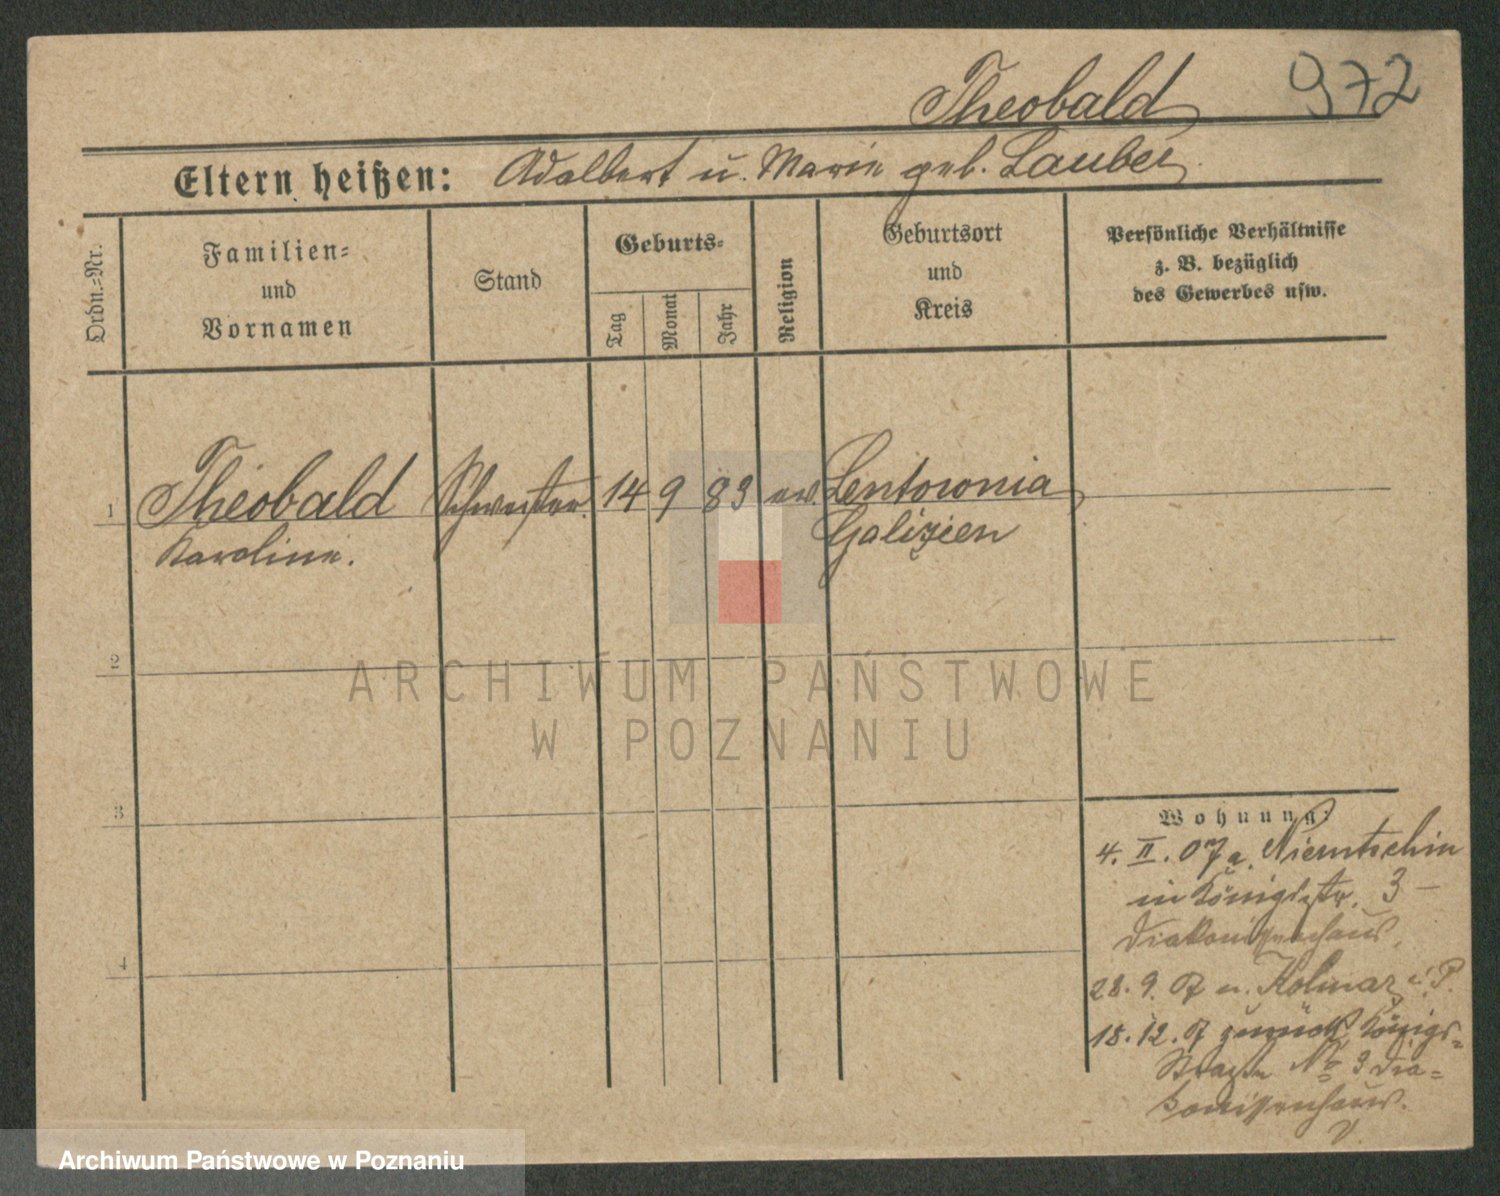 972
Theobald
Eltern heißen: Adalbert u. Marie geb. Lauber.
Ordn.-Nr.
Familien-
und
Vornamen
Stand
Geburts-
Tag
Monat
Jahr
Religion
Geburtsort
und
Kreis
Persönliche Verhältnisse
z. B. bezüglich
des Gewerbes usw.
1 Theobald Schwester. 14 9 83 ev. Lentownia
Karoline. Galizien
2
3
4
ARCHIWUM PAŃSTWOWE
W POZNANIU
Wohnung:
4. II. 07 a. Niemtschin
in Königstr. 3 –
Diakonissenhaus.
28. 9. 07 n. Kolmar i. P.
18. 12. 07 zurück Königs-
Straße No 3 Dia-
konissenhaus.
Archiwum Państwowe w Poznaniu